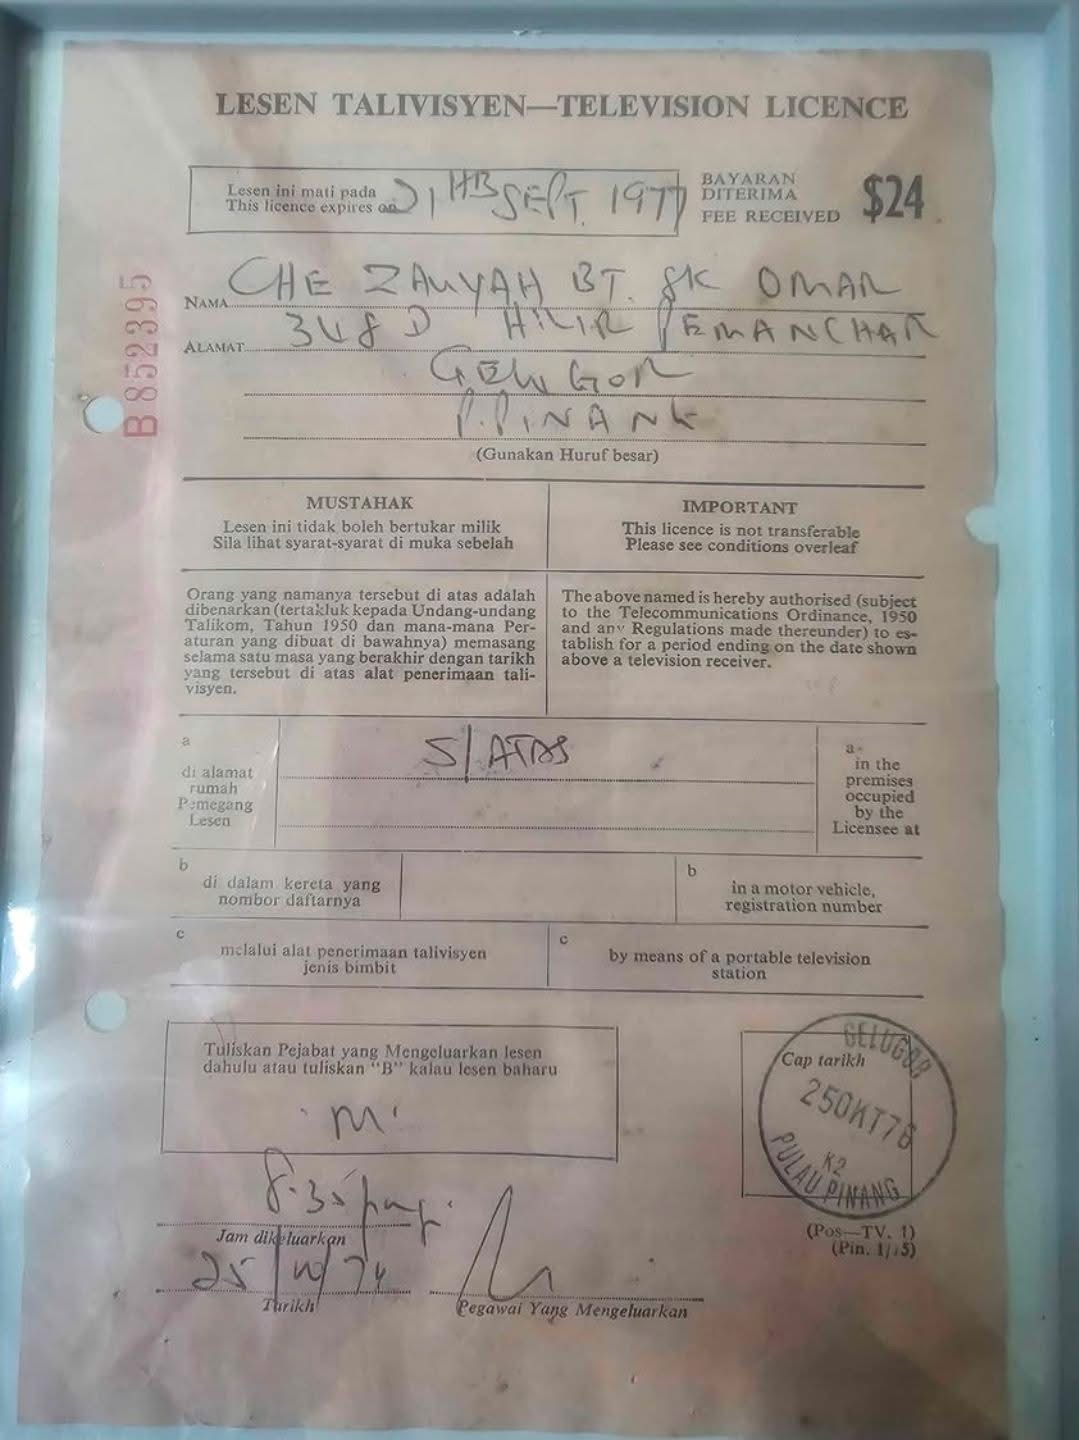 LESEN TALIVISYEN—TELEVISION LICENCE
Lesen ini mati pada
This licence expires on
SEPT. 1977
BAYARAN
DITERIMA
FEE RECEIVED
$24
B 852395
NAMA CHE ZALIYAH BT. SK OMAR
ALAMAT 348 D HILIR PEMANCHAR
GELUGOR
P. PINANG
(Gunakan Huruf besar)
MUSTAHAK
Lesen ini tidak boleh bertukar milik
Sila lihat syarat-syarat di muka sebelah
IMPORTANT
This licence is not transferable
Please see conditions overleaf
Orang yang namanya tersebut di atas adalah
dibenarkan (tertakluk kepada Undang-undang
Talikom, Tahun 1950 dan mana-mana Per-
aturan yang dibuat di bawahnya) memasang
selama satu masa yang berakhir dengan tarikh
yang tersebut di atas alat penerimaan tali-
visyen.
The above named is hereby authorised (subject
to the Telecommunications Ordinance, 1950
and any Regulations made thereunder) to es-
tablish for a period ending on the date shown
above a television receiver.
a
di alamat
rumah
Pemegang
Lesen
S/ATAS
a
in the
premises
occupied
by the
Licensee at
b
di dalam kereta yang
nombor daftarnya
b
in a motor vehicle,
registration number
c
melalui alat penerimaan talivisyen
jenis bimbit
c
by means of a portable television
station
Tuliskan Pejabat yang Mengeluarkan lesen
dahulu atau tuliskan "B" kalau lesen baharu
M
Cap tarikh
GELUGOR
25OKT76
K2
PULAU PINANG
(Pos—TV. 1)
(Pin. 1/75)
8.35 pagi
Jam dikeluarkan
25/10/76
Tarikh
Pegawai Yang Mengeluarkan